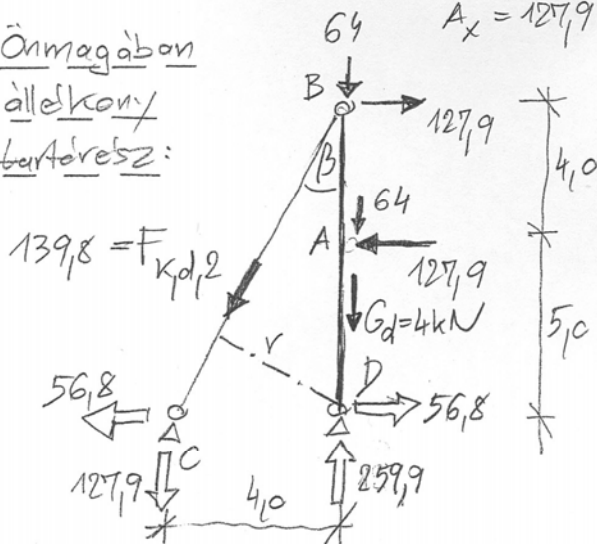 Önmagában
állékony
tartórész:
64
Aₓ = 127,9
B
127,9
β
4,0
64
139,8 = F k,d,2
A
127,9
G d = 4 kN
5,0
r
D
56,8
56,8
C
127,9
4,0
259,9